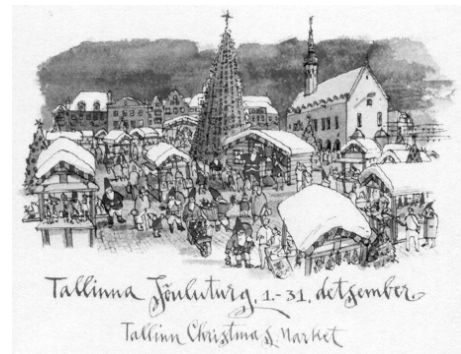 Tallinna Jõuluturg, 1.-31. detsember
Tallinn Christmas Market